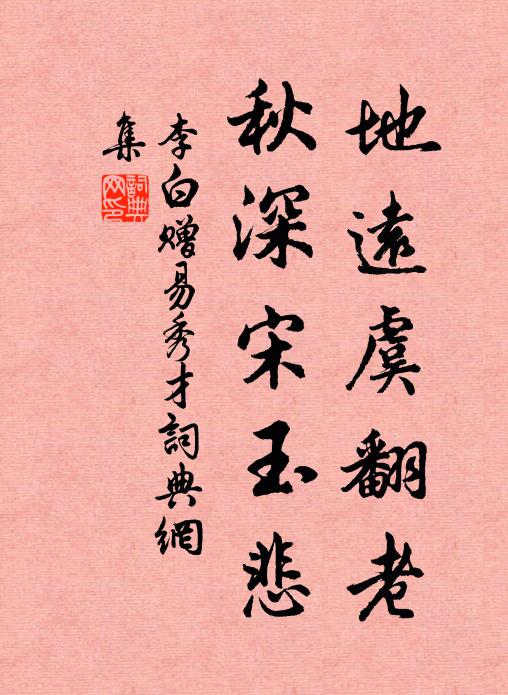 地遠虞翻老
秋深宋玉悲
李白赠易秀才詞典網
集
詞典
网印